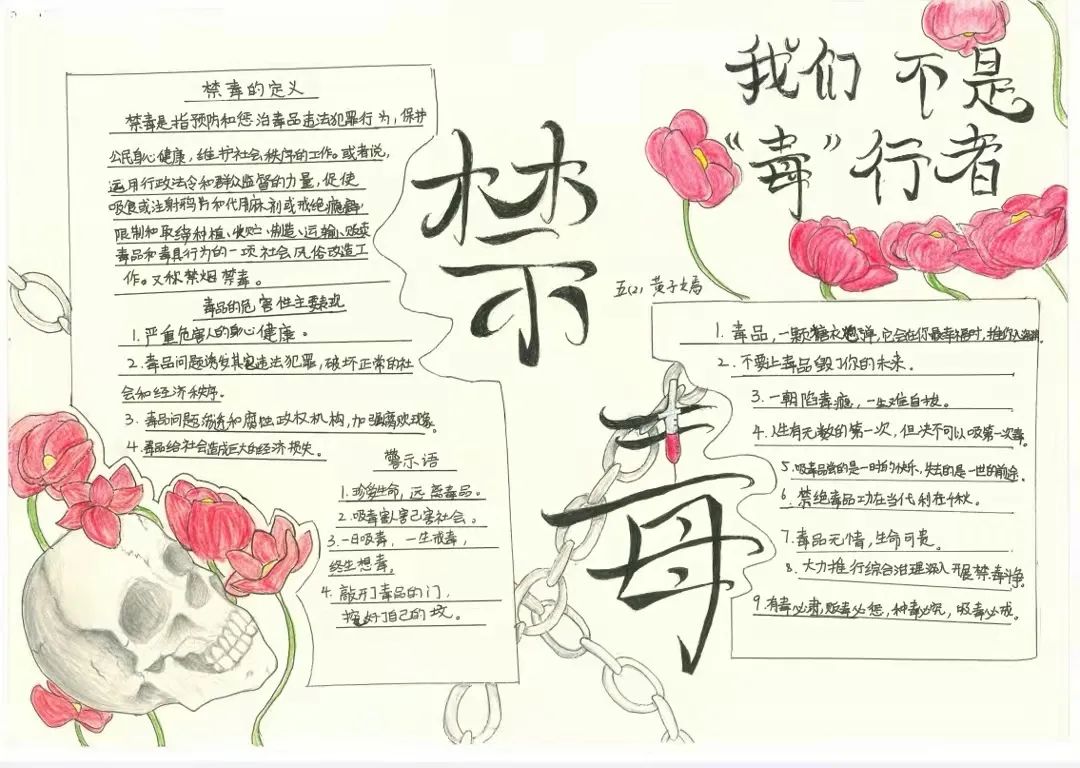 我们不是
“毒”行者
禁
毒
禁毒的定义
禁毒是指预防和惩治毒品违法犯罪行为,保护
公民身心健康,维护社会秩序的工作。或者说,
运用行政法令和群众监督的力量,促使
吸食或注射鸦片和代用麻剂或戒绝瘾癖,
限制和取缔种植、制造、运输、贩卖
毒品和毒具行为的一项社会风俗改造工
作。又称禁烟禁毒。
毒品的危害性主要表现
1.严重危害人的身心健康。
2.毒品问题诱发其它违法犯罪,破坏正常的社
会和经济秩序。
3.毒品问题渗透和腐蚀政权机构,加强腐败现象。
4.毒品给社会造成巨大的经济损失。
警示语
1.珍爱生命,远离毒品。
2.吸毒害人害己害社会。
3.一日吸毒,一生戒毒,
终生想毒。
4.敲开了毒品的门,
挖好了自己的坟。
五(2)黄子
1.毒品,一颗糖衣炮弹,它会在你最幸福时,推你入
2.不要让毒品毁了你的未来。
3.一朝陷毒瘾,一生难自拔。
4.人生有无数的第一次,但决不可以吸第一次毒。
5.吸毒品的是一时的快乐,失去的是一世的前途。
6.禁绝毒品功在当代利在千秋。
7.毒品无情,生命可贵。
8.大力推行综合治理深入开展禁毒斗争。
9.有毒必肃,贩毒必惩,种毒必究,吸毒必戒。